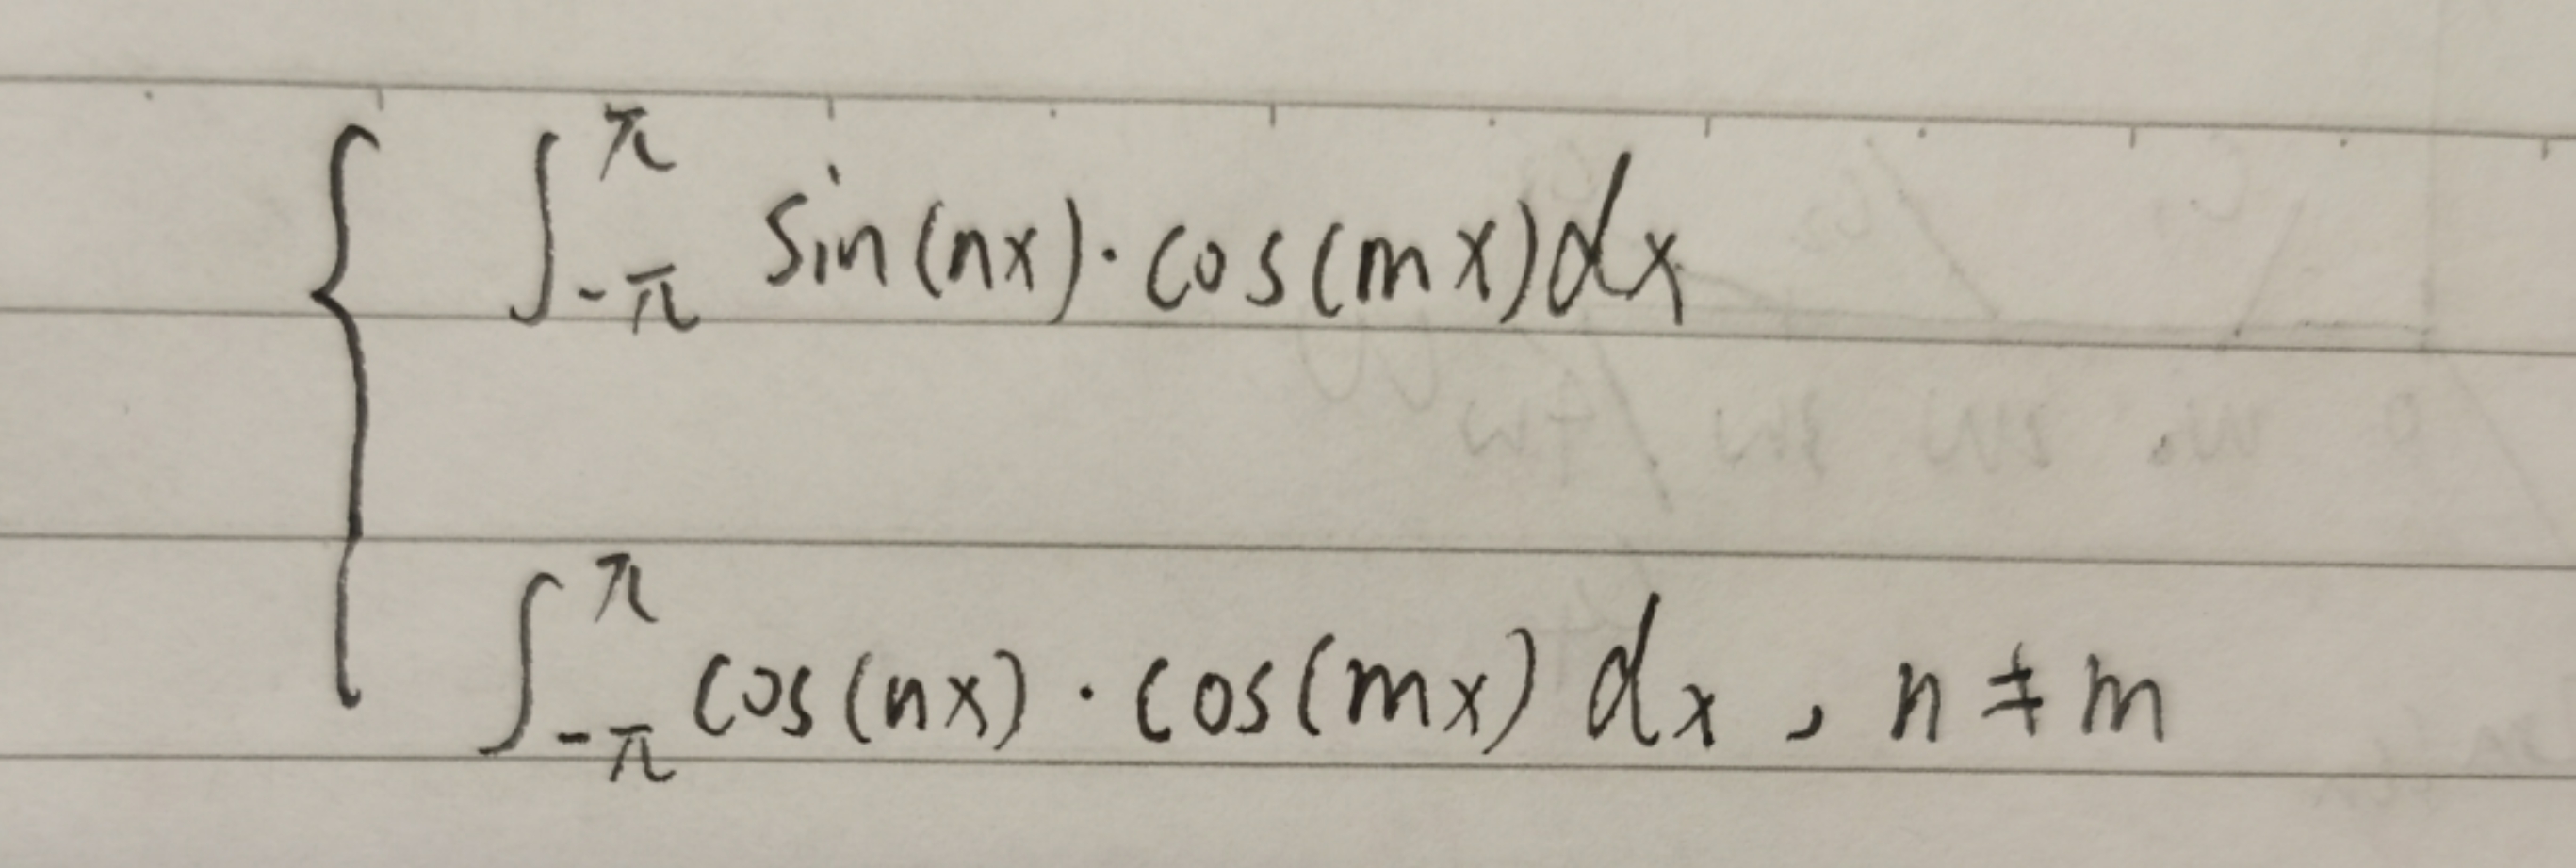 ∫_{-π}^{π} sin(nx)·cos(mx)dx
∫_{-π}^{π} cos(nx)·cos(mx)dx, n≠m